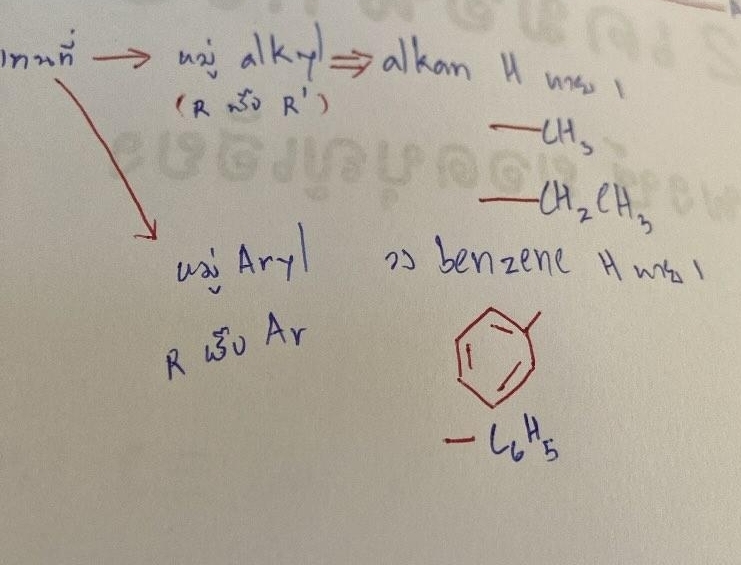 แทนที่ → หมู่ alkyl ⇒ alkan H หาย 1
(R หรือ R')
—CH₃
—CH₂CH₃
หมู่ Aryl วง benzene H หาย 1
R หรือ Ar
— C₆H₅